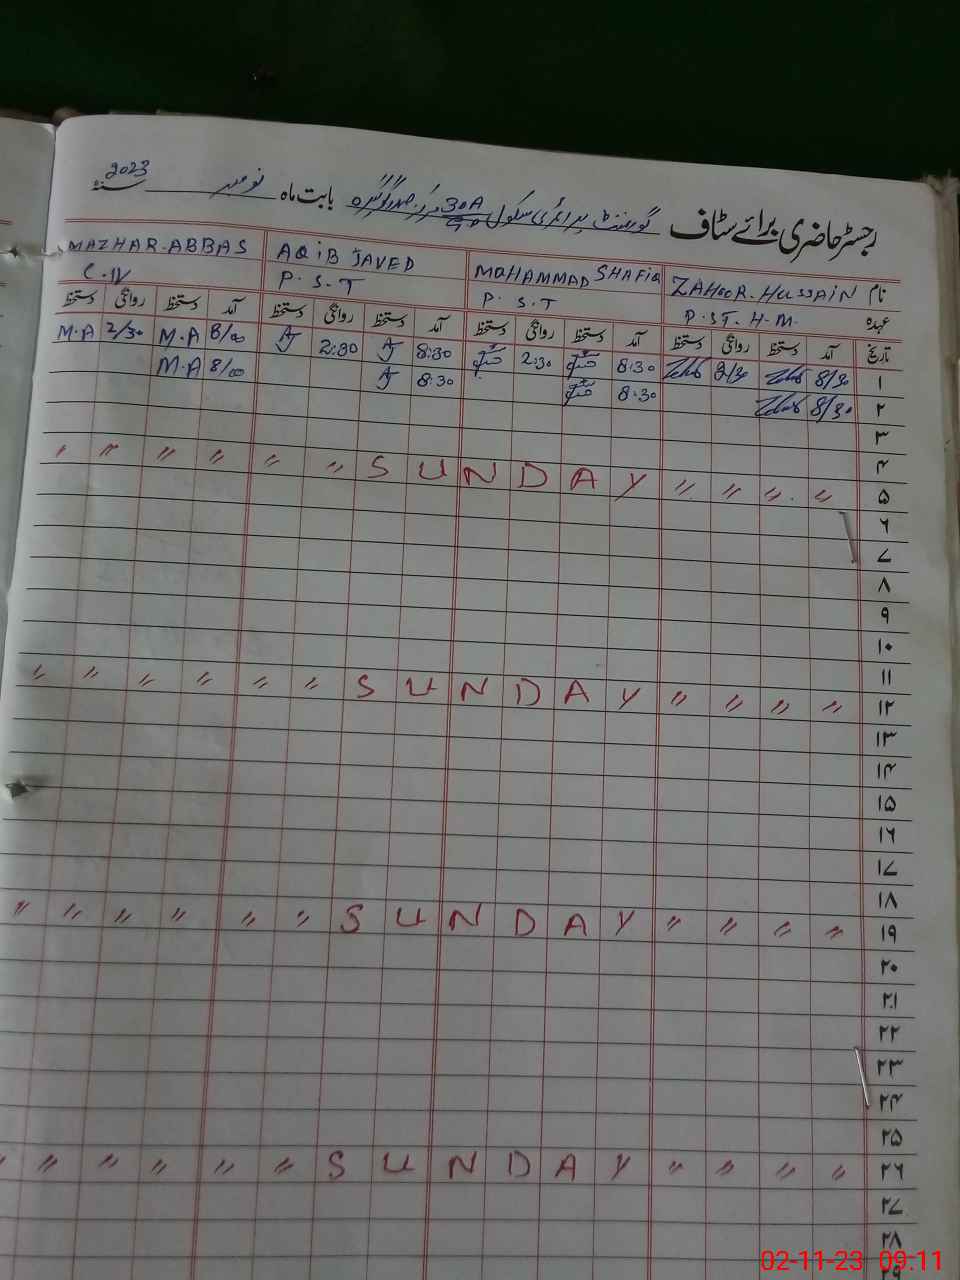 رجسٹر حاضری برائے سٹاف گورنمنٹ پرائمری سکول 30A بابت ماہ نومبر 2023 سنہ
نام ZAHOOR.HUSSAIN MOHAMMAD SHAFIQ AQIB JAVED MAZHAR.ABBAS
عہدہ P.ST.H.M. P.S.T P.S.T C.IV
تاریخ آمد دستخط روانگی دستخط آمد دستخط روانگی دستخط آمد دستخط روانگی دستخط آمد دستخط روانگی دستخط
۱ 8/30 8:30 2:30 8:30 AJ 2:30 AJ 8/00 M.A 2/30 M.A
۲ 8/30 8:30 8:30 AJ 8/00 M.A
۳
۴
۵ " " " " " " S U N D A Y " " " "
۶
۷
۸
۹
۱۰
۱۱
۱۲ " " " " " " S U N D A Y " " " "
۱۳
۱۴
۱۵
۱۶
۱۷
۱۸
۱۹ " " " " " " S U N D A Y " " " "
۲۰
۲۱
۲۲
۲۳
۲۴
۲۵
۲۶ " " " " " " S U N D A Y " " " "
۲۷
۲۸
۲۹
02-11-23 09:11